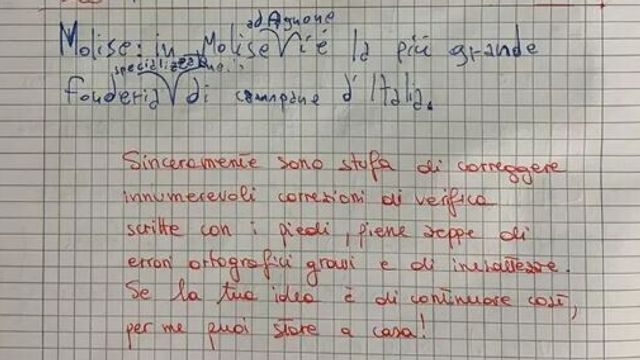 ad Agnone
Molise: in Molise V i è la più grande
specializzazione
fonderia V di campane d'Italia.
Sinceramente sono stufa di correggere
innumerevoli correzioni di verifica
scritte con i piedi, piene zeppe di
errori ortografici gravi e di inesattezze.
Se la tua idea è di continuare così,
per me puoi stare a casa!